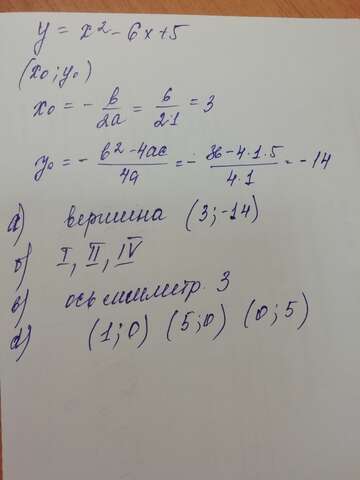 y = x² - 6x + 5
(x₀; y₀)
x₀ = - b/2a = 6/2·1 = 3
y₀ = - b² - 4ac/4a = - 36 - 4·1·5/4·1 = -14
а) вершина (3; -14)
б) I, II, IV
в) ось симметр. 3
д) (1; 0) (5; 0) (0; 5)